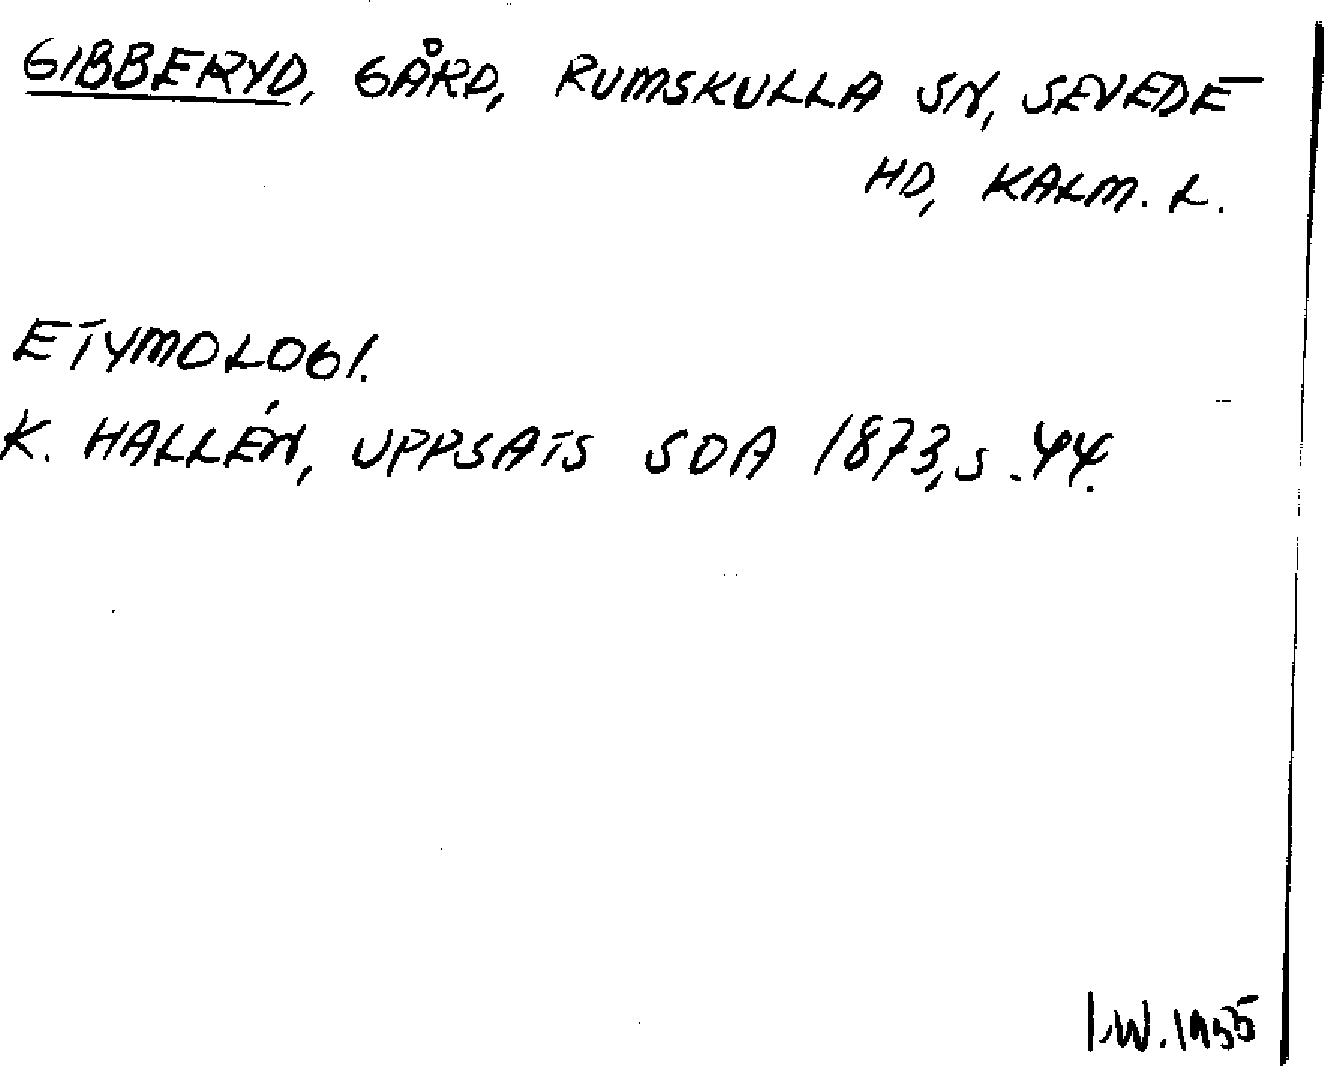 GIBBERYD, GÅRD, RUMSKULLA SN, SEVEDE
HD, KALM. L.
ETYMOLOGI.
K. HALLÉN, UPPSATS SOA 1873, S. 44.
I.W. 1955